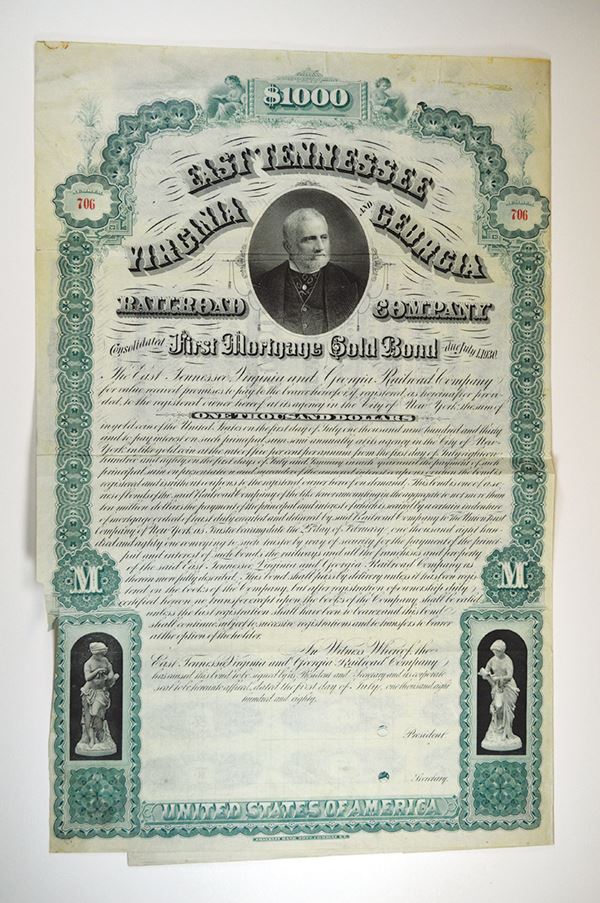 $1000
EAST TENNESSEE
NUMBER 706
NUMBER 706
VIRGINIA AND GEORGIA
RAILROAD COMPANY
Consolidated First Mortgage Gold Bond due July 1, 1930.
The East Tennessee, Virginia and Georgia Railroad Company,
for value received promises to pay to the bearer hereof or, if registered, as hereinafter provi-
ded, to the registered owner hereof at its agency in the City of New York, the sum of
ONE THOUSAND DOLLARS
in gold coin of the United States on the first day of July one thousand nine hundred and thirty
and to pay interest on such principal sum semi annually at its agency in the City of New-
York in like gold coin at the rate of five per cent per annum from the first day of July eighteen
hundred and eighty on the first days of July and January until the payment of such
principal sum
registered and is without coupons to the registered owner hereof on demand. This bond is one of a se-
ries of bonds of the said Railroad Company of the like tenor amounting in the aggregate to not more than
ten million dollars the payment of the principal and interest of which is secured by a certain indenture
of mortgage or deed of trust duly executed and delivered by said Railroad Company to The Union Trust
Company of New York as Trustee bearing date the day of February one thousand eight hun-
dred and eighty one conveying to such trustee by way of security for the payment of the princi-
pal and interest of such bonds the railways and all the franchises and property
of the said East Tennessee, Virginia and Georgia Railroad Company as
therein more fully described. This bond shall pass by delivery unless it has been regis-
tered on the books of the Company, but after registration of ownership duly
certified hereon no transfer except upon the books of the Company shall be valid
unless the last registration shall have been to bearer and this bond
shall continue subject to successive registrations and to transfers to bearer
at the option of the holder.
M M
In Witness Whereof the
East Tennessee, Virginia and Georgia Railroad Company
has caused this bond to be signed by its President and Secretary and its corporate
seal to be hereunto affixed, dated the first day of July, one thousand eight
hundred and eighty.
President.
Secretary.
UNITED STATES OF AMERICA
FRANKLIN BANK NOTE COMPANY N.Y.